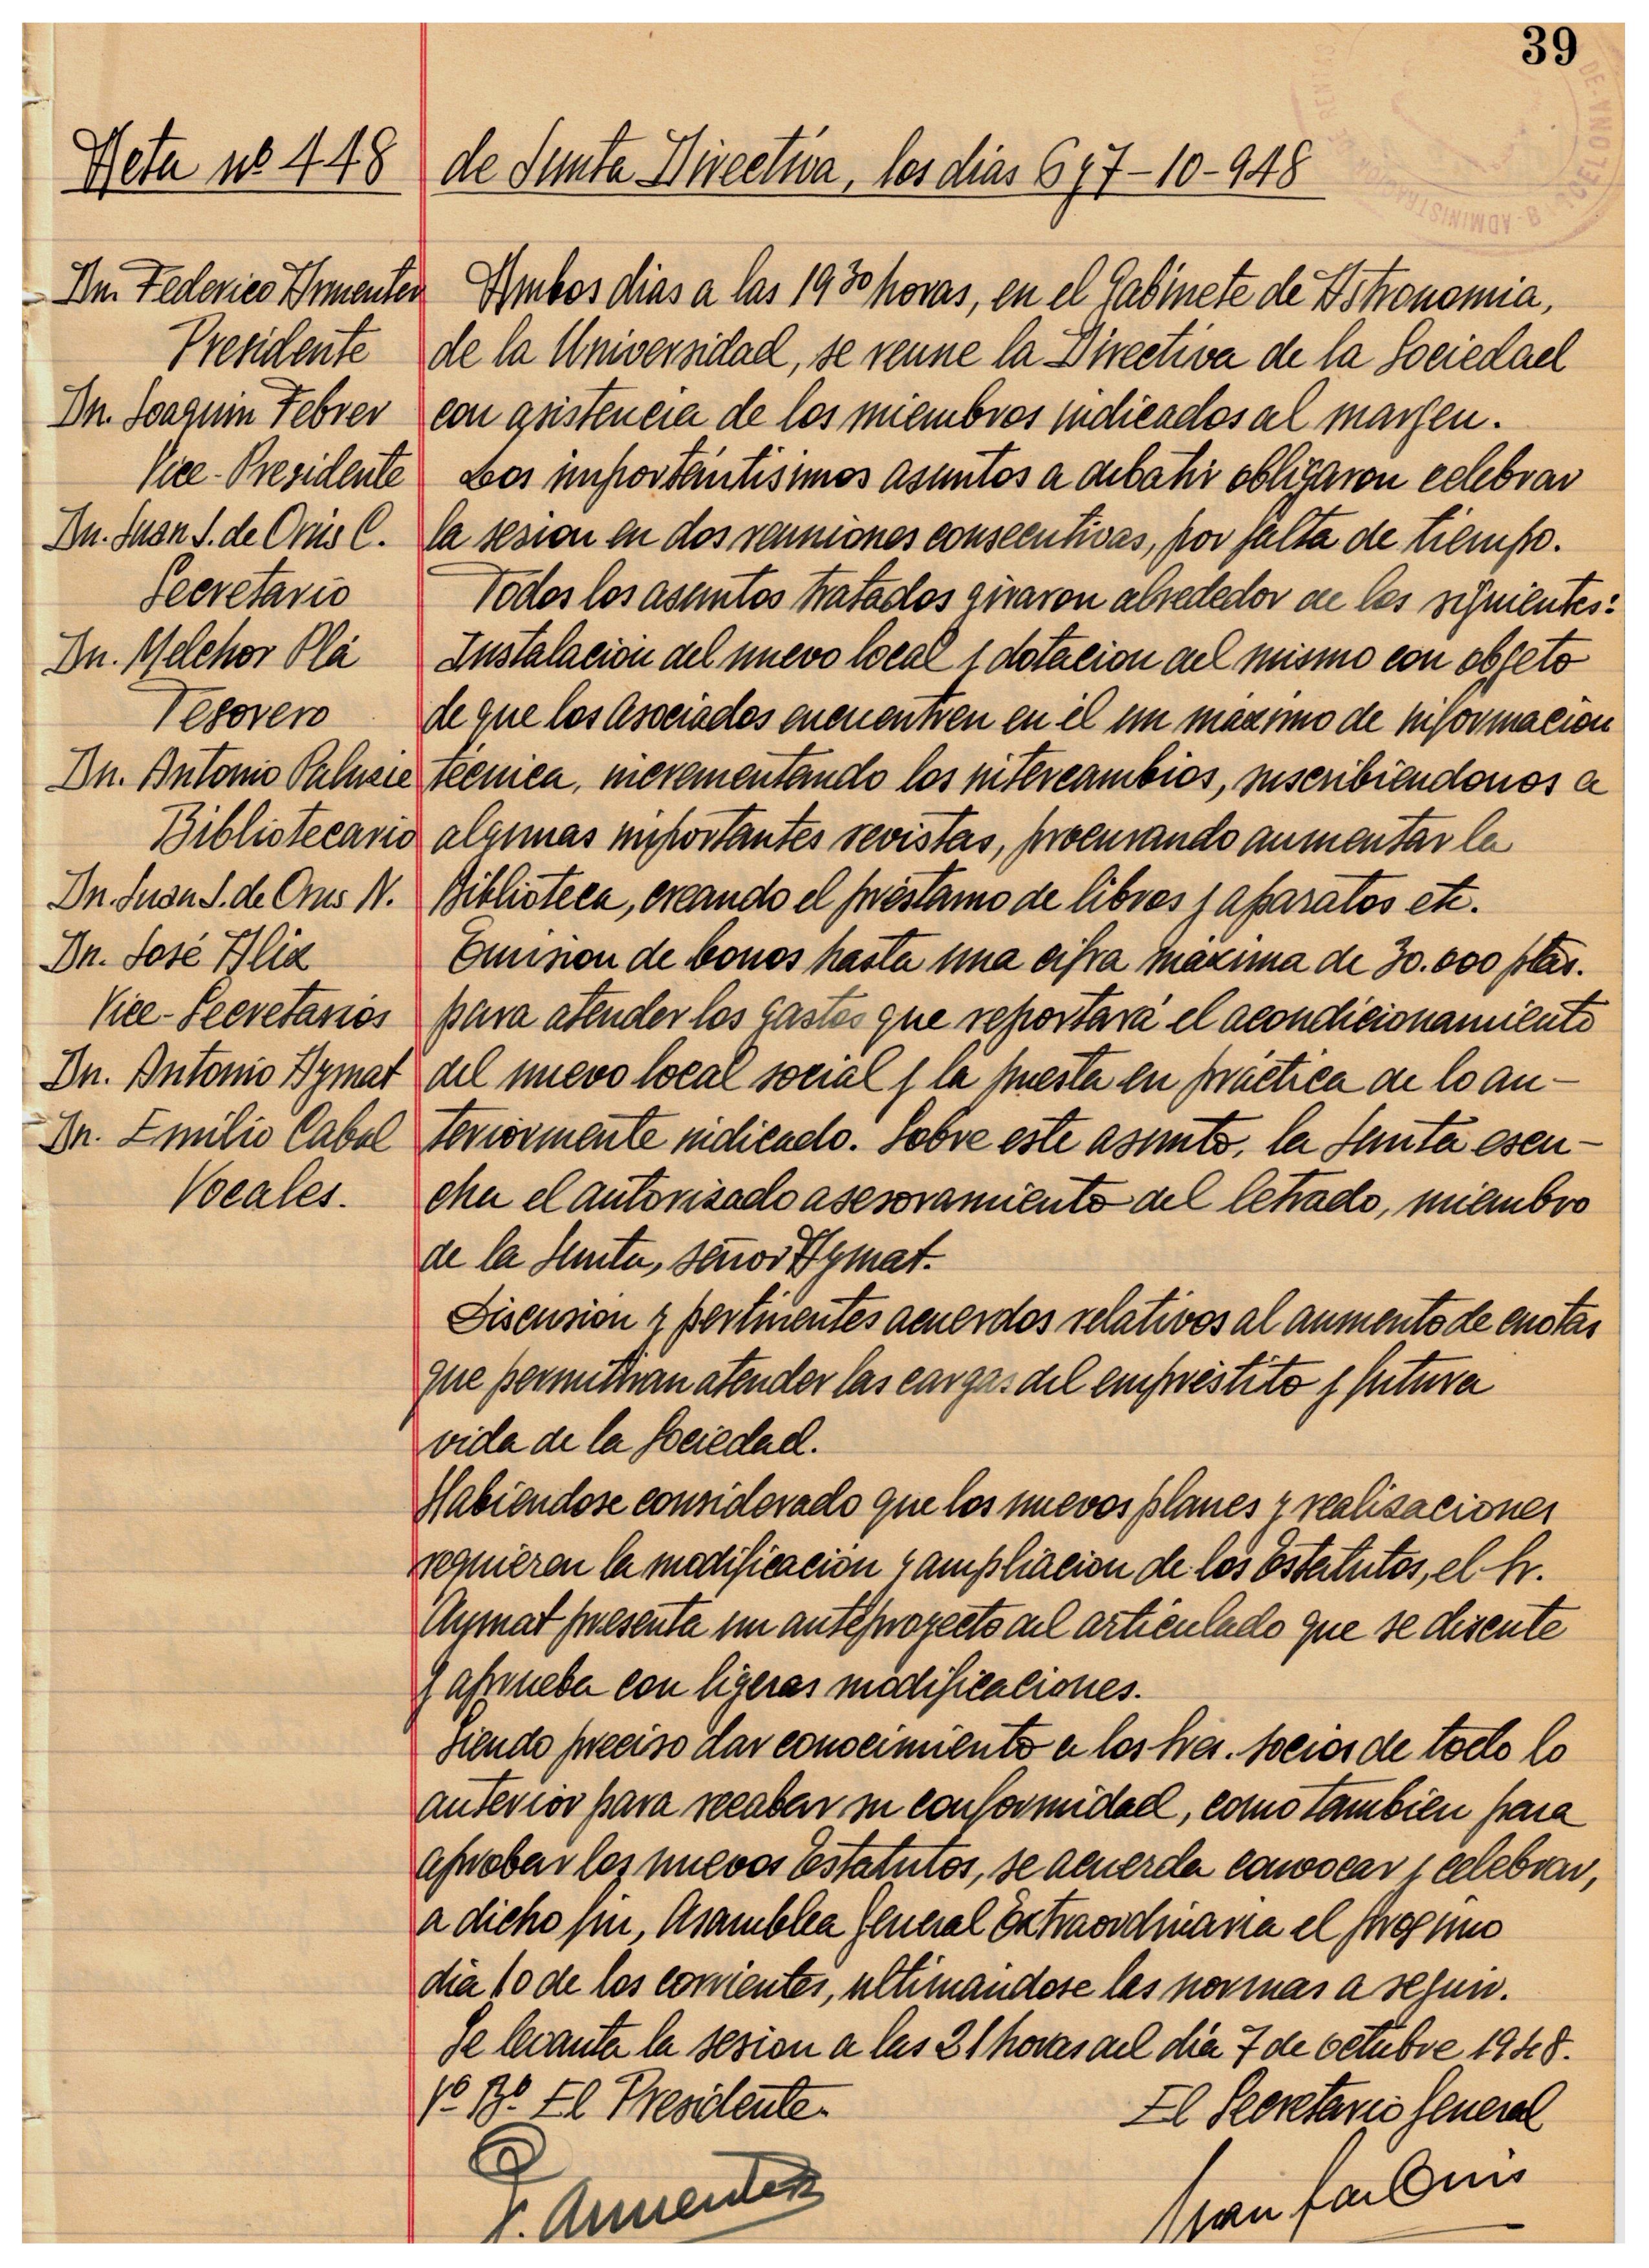 39
Acta nº 448 de Junta Directiva, los dias 6 y 7-10-948
Dn. Federico Armenter
Presidente
Dn. Joaquin Febrer
Vice-Presidente
Dn. Juan J. de Orús C.
Secretario
Dn. Melchor Plá
Tesorero
Dn. Antonio Paluzie
Bibliotecario
Dn. Juan J. de Orus N.
Dn. José Alix
Vice-Secretarios
Dn. Antonio Aymat
Dn. Emilio Cabol
Vocales.
Ambos dias a las 19 30 horas, en el Gabinete de Astronomia,
de la Universidad, se reune la Directiva de la Sociedad
con asistencia de los miembros indicados al margen.
Los importantísimos asuntos a debatir obligaron celebrar
la sesion en dos reuniones consecutivas, por falta de tiempo.
Todos los asuntos tratados giraron alrededor de los siguientes:
Instalación del nuevo local y dotacion del mismo con objeto
de que los Asociados encuentren en él un máximo de informacion
técnica, incrementando los intercambios, suscribiendonos a
algunas importantes revistas, procurando aumentar la
Biblioteca, creando el préstamo de libros y aparatos etc.
Emision de bonos hasta una cifra máxima de 30.000 ptas.
para atender los gastos que reportará el acondicionamiento
del nuevo local social y la puesta en práctica de lo an-
teriormente indicado. Sobre este asunto, la Junta escu-
cha el autorizado asesoramiento del letrado, miembro
de la Junta, señor Aymat.
Discusion y pertinentes acuerdos relativos al aumento de cuotas
que permitiran atender las cargas del empréstito y futura
vida de la Sociedad.
Habiendose considerado que los nuevos planes y realizaciones
requieren la modificacion y ampliacion de los Estatutos, el Sr.
Aymat presenta un anteproyecto del articulado que se discute
y aprueba con ligeras modificaciones.
Siendo preciso dar conocimiento a los Sres. socios de todo lo
anterior para recabar su conformidad, como tambien para
aprobar los nuevos Estatutos, se acuerda convocar y celebrar,
a dicho fin, Asamblea General Extraordinaria el proximo
dia 10 de los corrientes, ultimandose las normas a seguir.
Se levanta la sesion a las 21 horas del día 7 de octubre 1948.
Vº Bº El Presidente. El Secretario General
F. Armenter